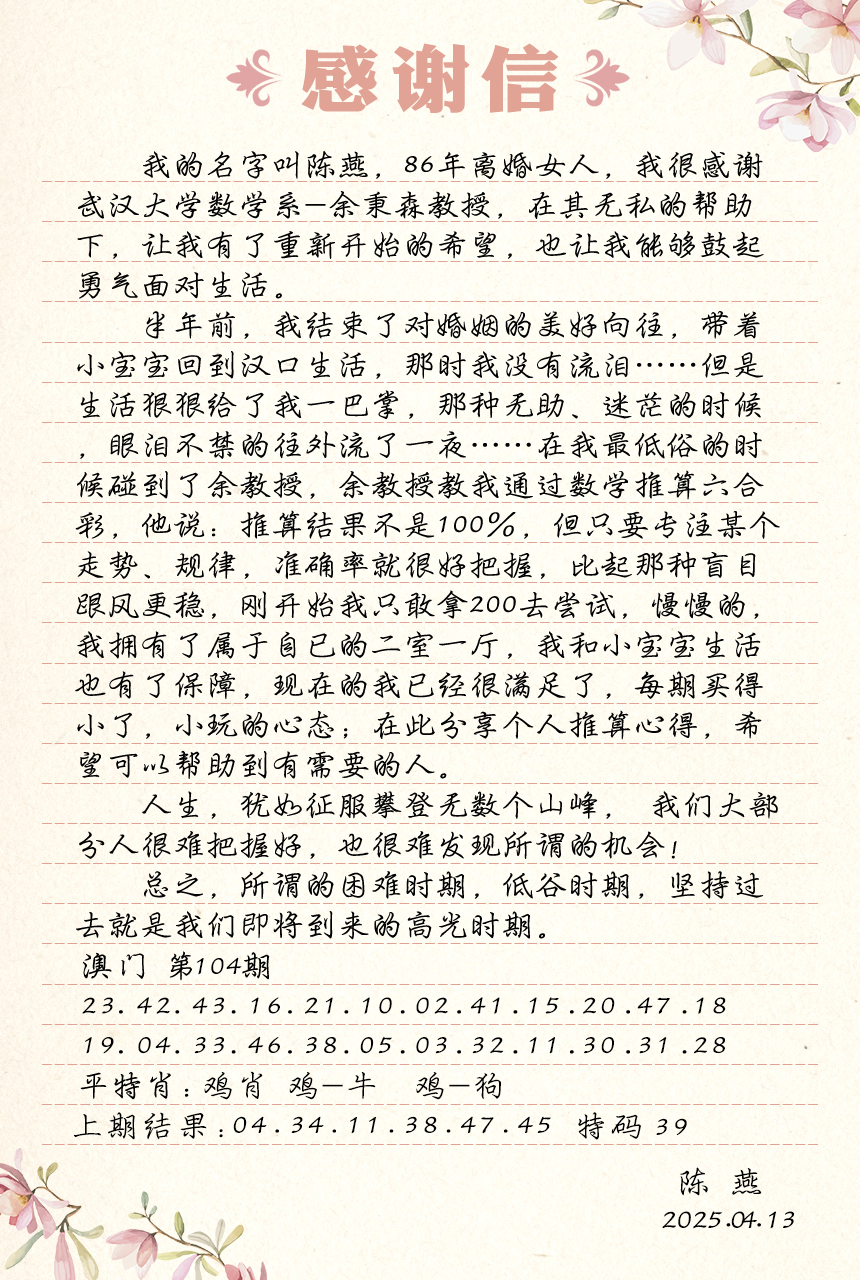 感谢信
我的名字叫陈燕，86年离婚女人，我很感谢
武汉大学数学系—余秉森教授，在其无私的帮助
下，让我有了重新开始的希望，也让我能够鼓起
勇气面对生活。
半年前，我结束了对婚姻的美好向往，带着
小宝宝回到汉口生活，那时我没有流泪……但是
生活狠狠给了我一巴掌，那种无助、迷茫的时候
，眼泪不禁的往外流了一夜……在我最低俗的时
候碰到了余教授，余教授教我通过数学推算六合
彩，他说：推算结果不是100%，但只要专注某个
走势、规律，准确率就很好把握，比起那种盲目
跟风更稳，刚开始我只敢拿200去尝试，慢慢的，
我拥有了属于自已的二室一厅，我和小宝宝生活
也有了保障，现在的我已经很满足了，每期买得
小了，小玩的心态；在此分享个人推算心得，希
望可以帮助到有需要的人。
人生，犹如征服攀登无数个山峰， 我们大部
分人很难把握好，也很难发现所谓的机会！
总之，所谓的困难时期，低谷时期，坚持过
去就是我们即将到来的高光时期。
澳门 第104期
23.42.43.16.21.10.02.41.15.20.47.18
19.04.33.46.38.05.03.32.11.30.31.28
平特肖：鸡肖 鸡—牛 鸡—狗
上期结果：04.34.11.38.47.45 特码 39
陈 燕
2025.04.13